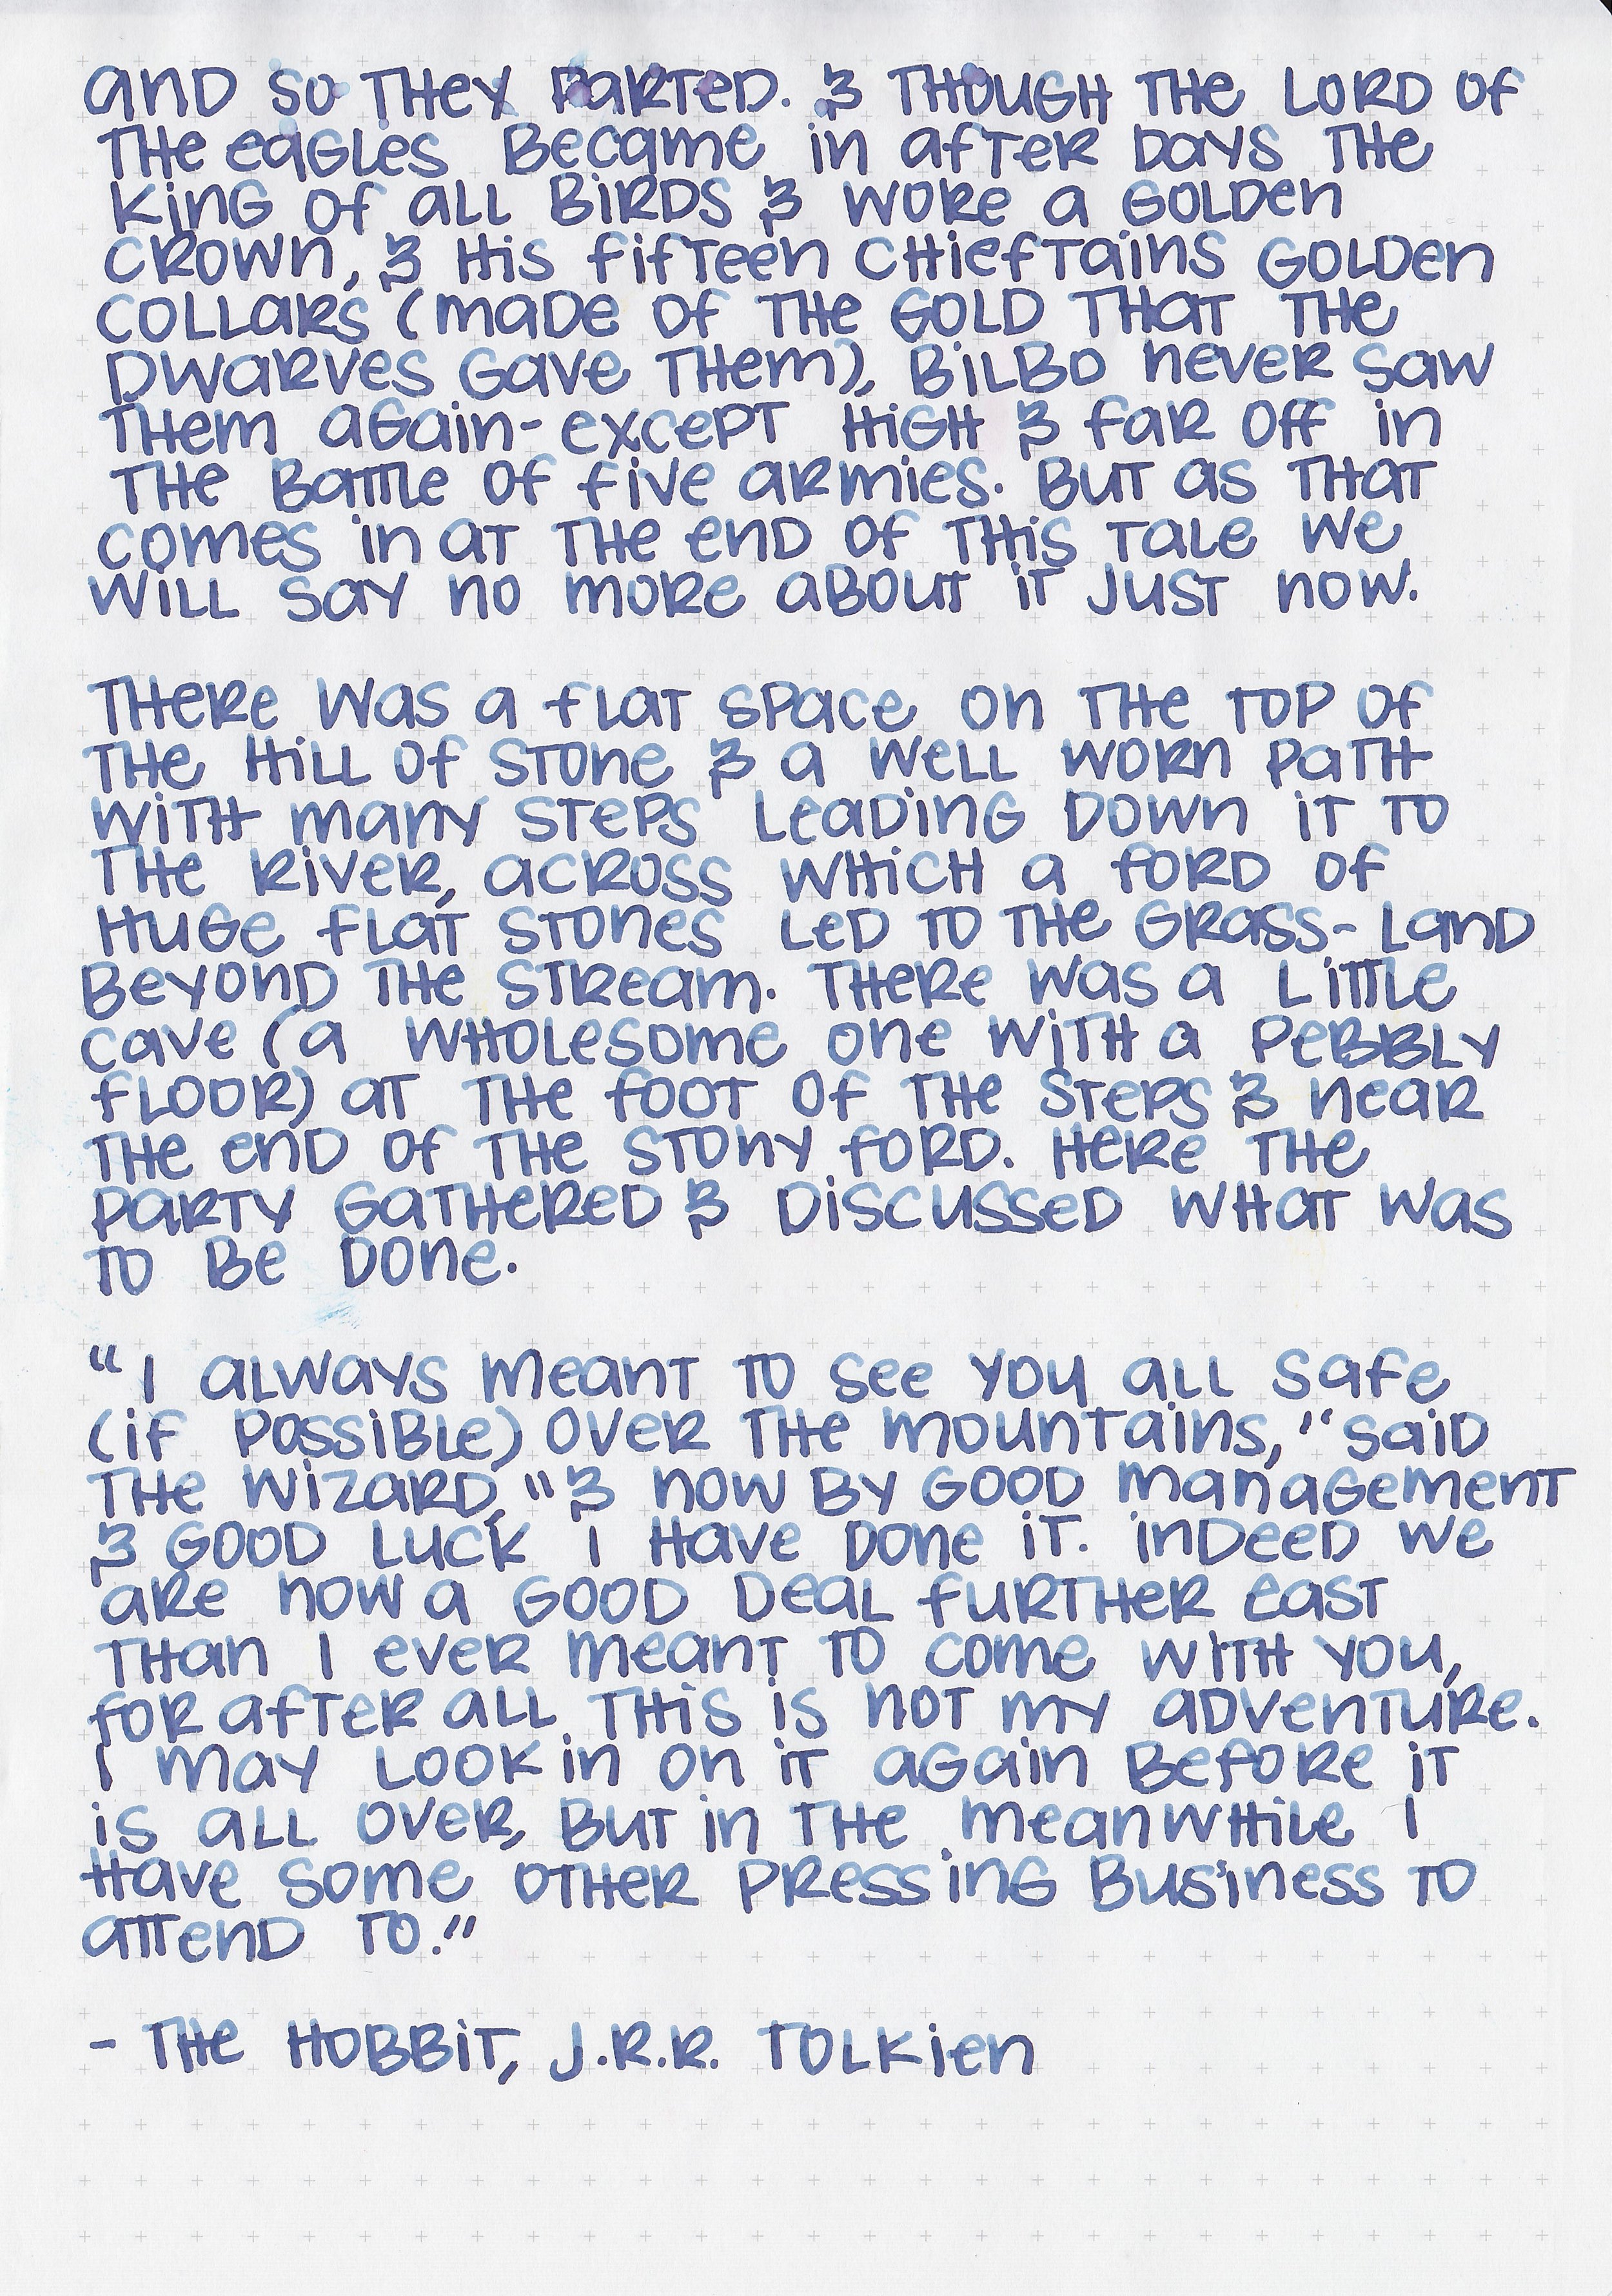 and so they parted. & though the Lord of
the eagles became in after days the
King of all Birds & wore a golden
crown, & his fifteen chieftains golden
collars (made of the gold that the
Dwarves gave them), Bilbo never saw
them again-except high & far off in
the Battle of five armies. But as that
comes in at the end of this tale we
will say no more about it just now.

There was a flat space on the top of
the hill of stone & a well worn path
with many steps leading down it to
the river, across which a ford of
huge flat stones led to the grass-land
beyond the stream. There was a little
cave (a wholesome one with a pebbly
floor) at the foot of the steps & near
the end of the stony ford. Here the
party gathered & discussed what was
to be done.

"I always meant to see you all safe
(if possible) over the mountains," said
the wizard, "& now by good management
& good luck I have done it. Indeed we
are now a good deal further east
than I ever meant to come with you,
for after all this is not my adventure.
I may look in on it again before it
is all over, but in the meanwhile I
have some other pressing business to
attend to."

- The Hobbit, J.R.R. Tolkien